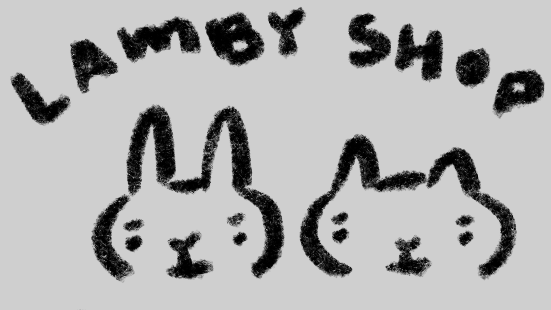 LAMBY SHOP